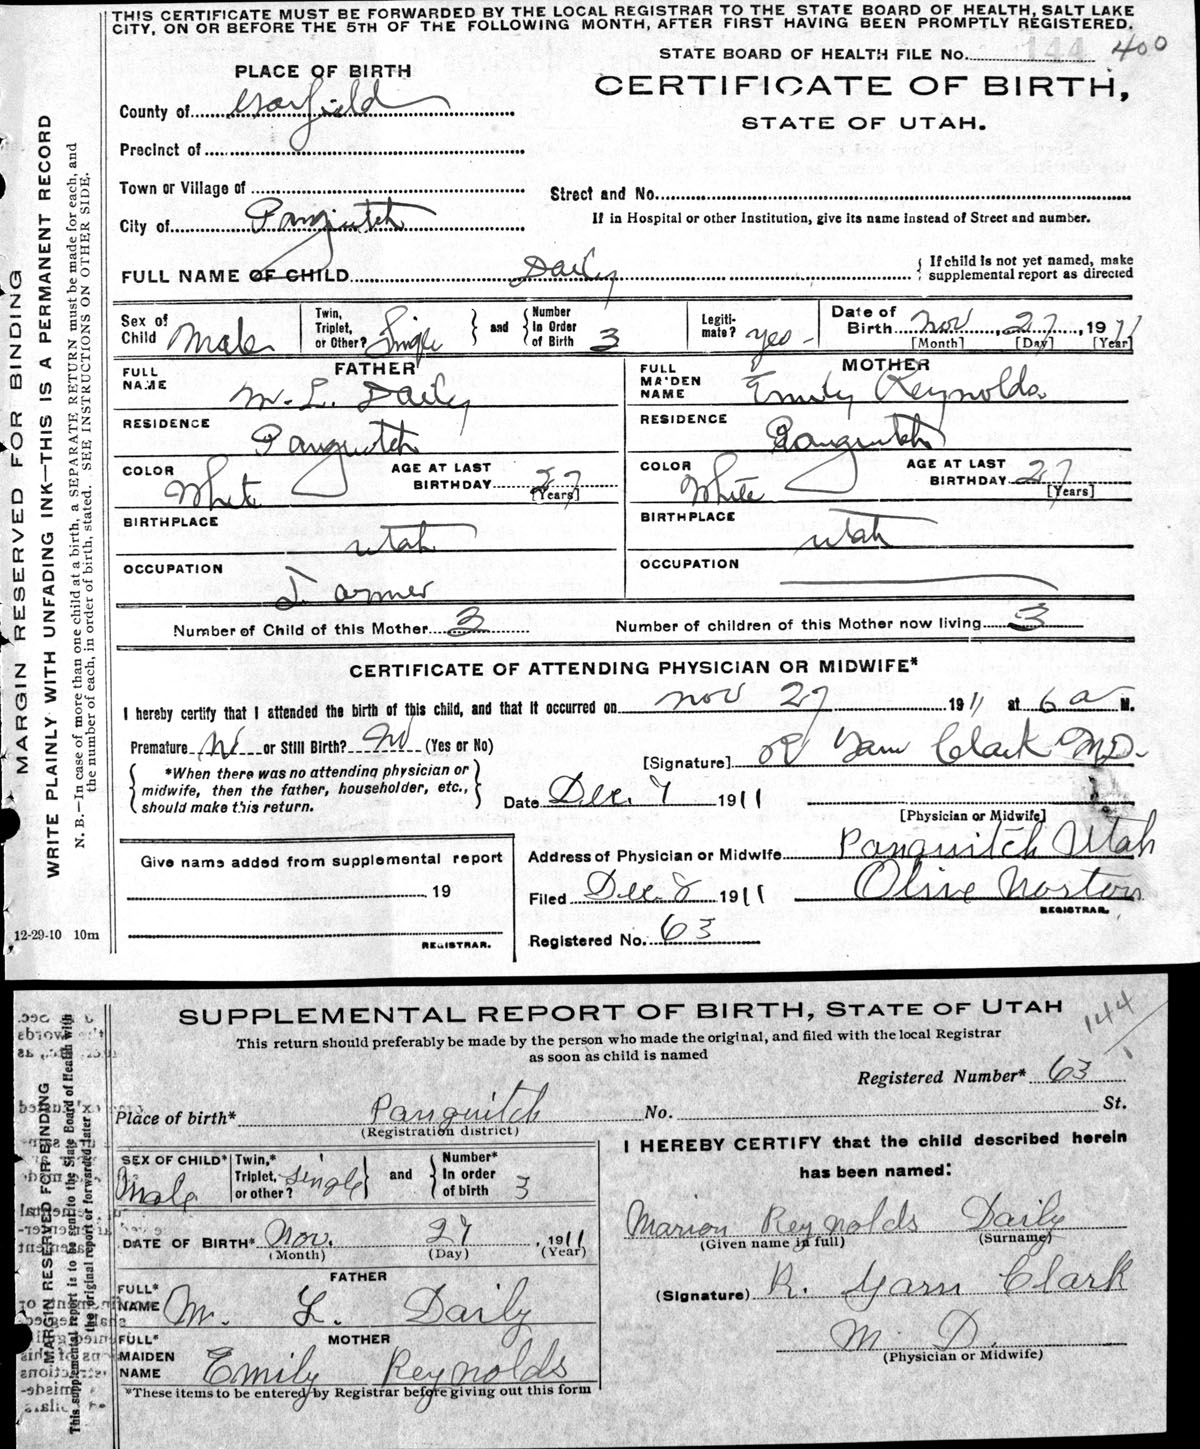 THIS CERTIFICATE MUST BE FORWARDED BY THE LOCAL REGISTRAR TO THE STATE BOARD OF HEALTH, SALT LAKE
CITY, ON OR BEFORE THE 5TH OF THE FOLLOWING MONTH, AFTER FIRST HAVING BEEN PROMPTLY REGISTERED.
STATE BOARD OF HEALTH FILE No. 144 400
CERTIFICATE OF BIRTH,
STATE OF UTAH.
PLACE OF BIRTH
County of Garfield
Precinct of
Town or Village of
Street and No.
City of Panguitch
If in Hospital or other Institution, give its name instead of Street and number.
FULL NAME OF CHILD Daily
If child is not yet named, make
supplemental report as directed
Sex of Child Male
Twin, Triplet, or Other? Single
and Number In Order of Birth 3
Legiti-mate? yes
Date of Birth Nov 27, 1911
[Month] [Day] [Year]
FATHER
FULL NAME M. L. Daily
RESIDENCE Panguitch
COLOR White
AGE AT LAST BIRTHDAY 27 [Years]
BIRTHPLACE Utah
OCCUPATION Farmer
MOTHER
FULL MAIDEN NAME Emily Reynolds
RESIDENCE Panguitch
COLOR White
AGE AT LAST BIRTHDAY 27 [Years]
BIRTHPLACE Utah
OCCUPATION
Number of Child of this Mother 3
Number of children of this Mother now living 3
CERTIFICATE OF ATTENDING PHYSICIAN OR MIDWIFE*
I hereby certify that I attended the birth of this child, and that it occurred on Nov 27 1911 at 6 a M.
Premature No or Still Birth? No (Yes or No)
[Signature] R Garn Clark M.D.
*When there was no attending physician or
midwife, then the father, householder, etc.,
should make this return.
Date Dec. 7 1911
[Physician or Midwife]
Give name added from supplemental report
19
REGISTRAR.
Address of Physician or Midwife Panguitch Utah
Filed Dec. 8 1911 Olive Norton
REGISTRAR.
Registered No. 63
12-29-10 10m
MARGIN RESERVED FOR BINDING
WRITE PLAINLY WITH UNFADING INK—THIS IS A PERMANENT RECORD
N. B.—In case of more than one child at a birth, a SEPARATE RETURN must be made for each, and
the number of each, in order of birth, stated. SEE INSTRUCTIONS ON OTHER SIDE.
SUPPLEMENTAL REPORT OF BIRTH, STATE OF UTAH
144
This return should preferably be made by the person who made the original, and filed with the local Registrar
as soon as child is named
Registered Number* 63
Place of birth* Panguitch No. St.
(Registration district)
SEX OF CHILD* Male
Twin,* Triplet, or other? Single
and Number* In order of birth 3
DATE OF BIRTH* Nov. 27, 1911
(Month) (Day) (Year)
FATHER
FULL* NAME M. L. Daily
MOTHER
FULL* MAIDEN NAME Emily Reynolds
*These items to be entered by Registrar before giving out this form
I HEREBY CERTIFY that the child described herein
has been named:
Marion Reynolds Daily
(Given name in full) (Surname)
(Signature) R. Garn Clark
M. D.
(Physician or Midwife)
MARGIN RESERVED FOR BINDING
This supplemental report is to be sent to the State Board of Health with
the original report or forwarded later